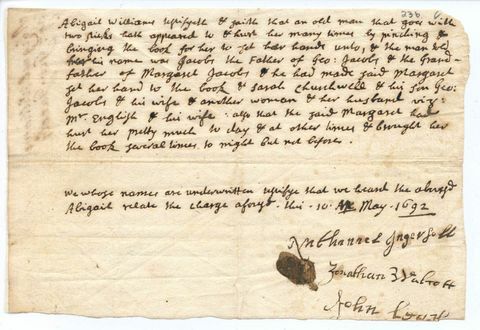 236
Abigail Williams testifyeth & saith that an old man that goes with
two sticks hath appeared to & hurt her many times by pinching &
bringing the book for her to set her hand unto, & the man told
her his name was Jacobs the Father of Geo: Jacobs & the Grand-
father of Margaret Jacobs & he had made said Margaret
set her hand to the book & Sarah Churchwell & his son Geo:
Jacobs & his wife & another woman & her husband viz:
Mr. English & his wife: also that the said Margaret had
hurt her pretty much to day & at other times & brought her
the book several times to night but not before.
we whose names are underwritten testifye that we heard the abovesd
Abigail relate the charge aforesd. this 10 May. 1692
Nathanniel Ingersoll
Jonathan Walcott
John